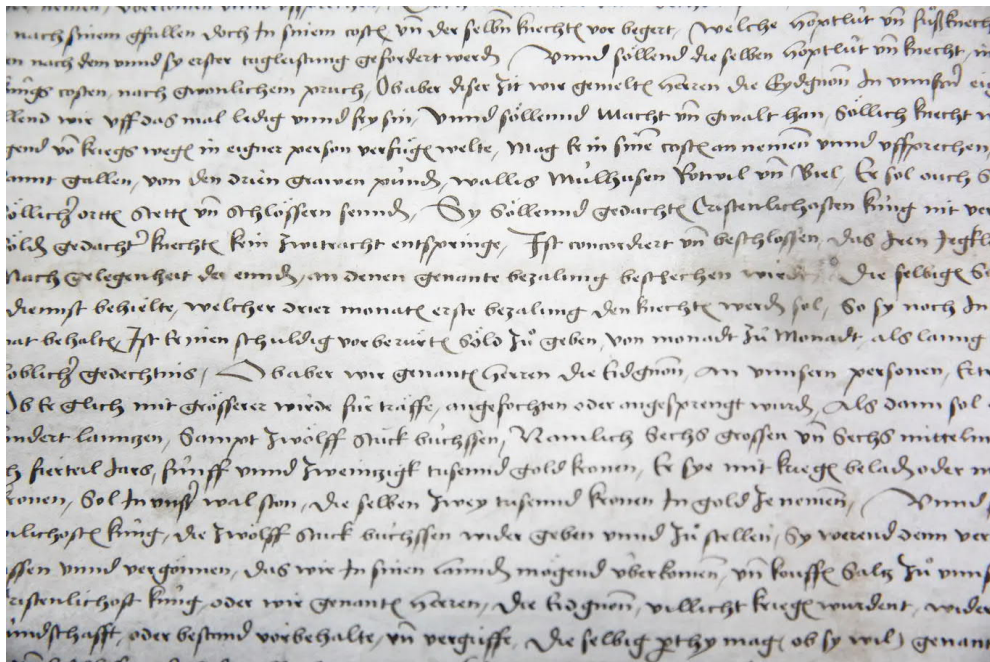 nach sinem gfallen doch In sinem costen vnd der selbn knechten vor begert, welche hoptlüt vnd fůßknech
nach dem vnnd sy erster tagleistung gefordert werden vnnd söllend die selben hoptlüt vnd knecht, in
costen, nach gwonlichem pruch, Ob aber diser Zit wir gemelten Herren die Eydgnon In vnnsern eig
lend wir vff das mal ledig vnnd fry sin, vnnd söllennd Macht vn gwalt han, Söllich knecht
gend vō kriegs wegen in eigner person verfügen welte, Mag ke in sinē costen an nemen vnnd vffsprechen,
gallen, von den drien grawen pünden, wallis Mülhusen Rotwil vn Biel, Er sol ouch S
öllicher ortten Stetten vn Schlössern sennden, Sy Söllennd gedachten Cristenlichosten küng mit
gedachter knechten kein Zwitracht entspringe, Ist concordiert vn beschlossen, das Iren Iegkl
Nach gelegenheit der ennden, an denen genante bezalung beschechen wirde Die selbigen Sö
diennst behielte, welcher drier monaten erste bezalung den knechten werden sol, So sy noch In
behalten, Ist ke inen schuldig vor berürten Söld Zů geben, von monadt Zů Monadt, als lanng
loblicher gedechtnis, Ob aber wir genanten Herren die Eidgnon, An vnnsern personen, Ert
Ob ke glich mit grösserer wirde fürträffe, angefochten oder angesprengt wurden, Als dann sol
undert lanntzen, Sampt Zwölff Stuck büchssen, Namlich Sechs grossen vn Sechs mittelm
fierteil Jars, fünff vnnd Zweintzigk tusennd gold kronen, Er sye mit kriegen beladen oder
kronen, Sol In vnser wal ston, die selben Zwey tusennd kronen In gold Ze nemen, Vnnd
nlichosten küng, die Zwölff Stuck büchssen wider geben vnnd Zů stellen, Sy werend denn ver
ssen vnnd vergönnen, das wir In sinen lannden mögend vberkomen, vn kouffen Saltz Zů vnns
ristenlichost küng, oder wir genanten Herren, die Eidgnon, villicht kriegen wurdent, wider
undschafft, oder bestand vorbehalte, vn vergriffe, die selbig parthy mag (ob sy wil) genant